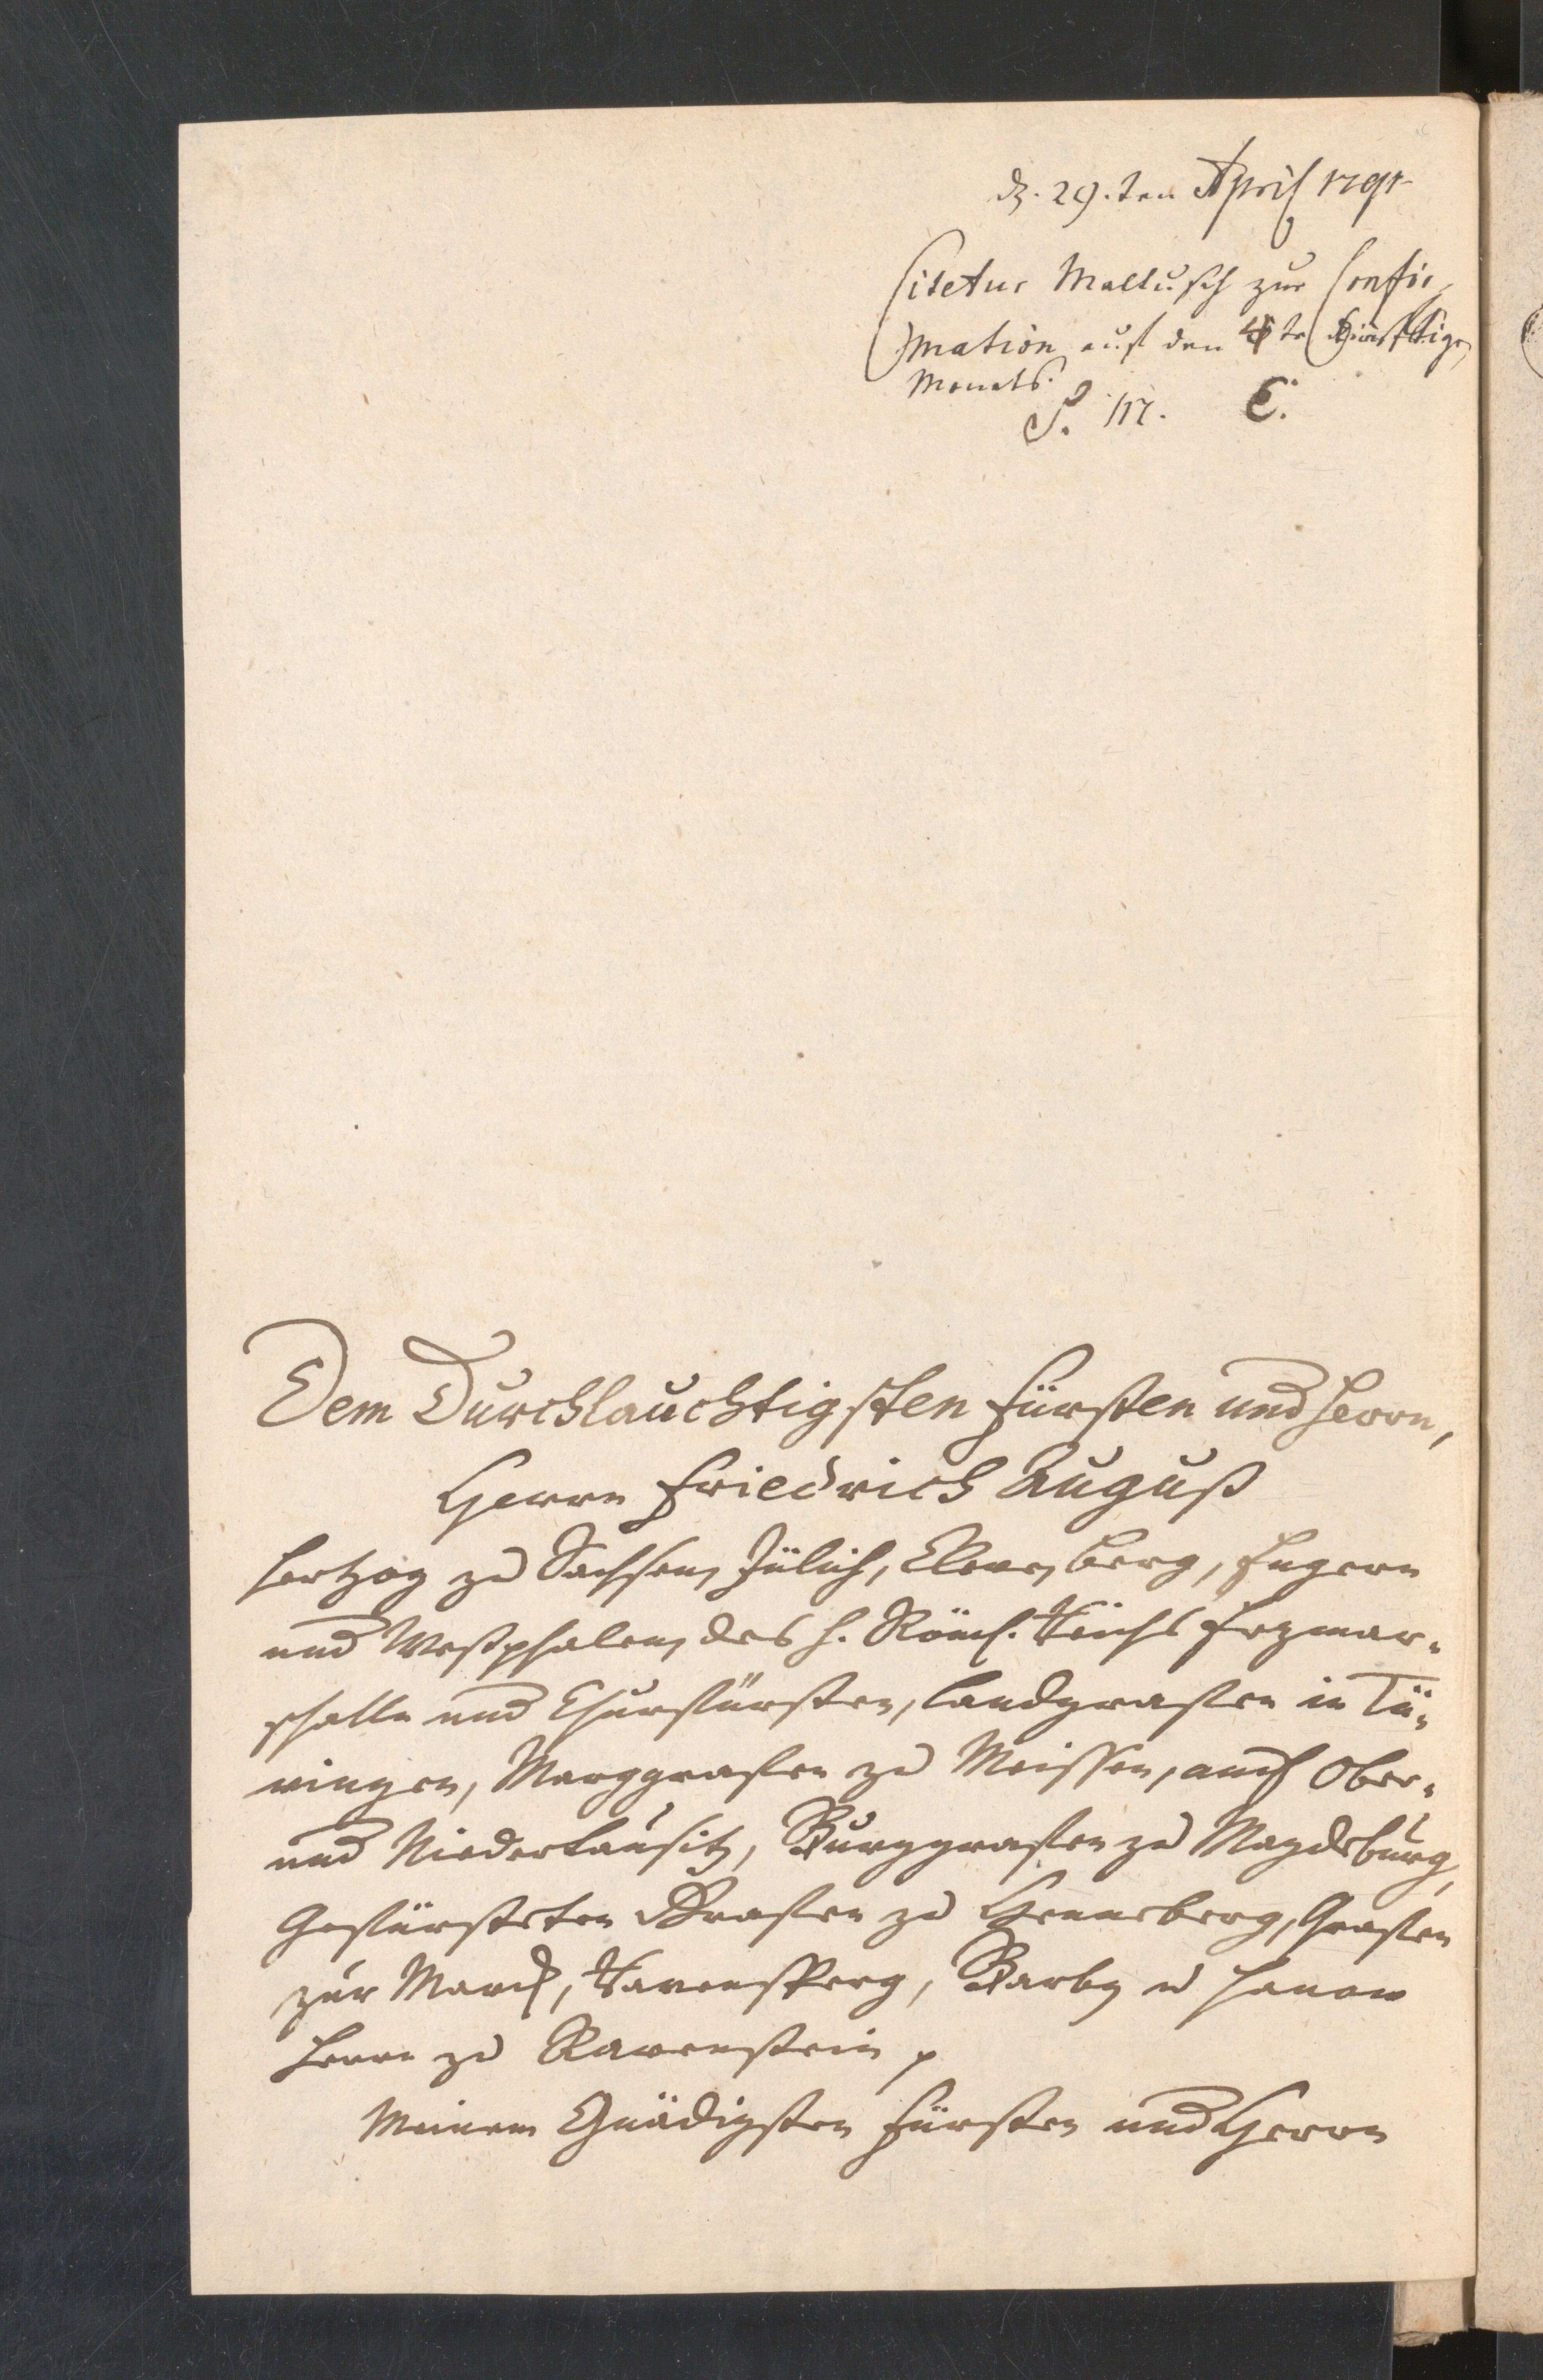 d. 29.ten April 1791
Citetur Maltusch zur Confir-
mation auf den ten künfftigen
Monats.
S. m. C.
Dem Durchlauchtigsten Fürsten und Herrn,
Herrn Friedrich August
Hertzog zu Sachsen, Jülich, Cleve, Berg, Engern
und Westphalen, des H. Röm. Reichs Erzmar-
schalln und Churfürsten, Landgrafen in Tü-
ringen, Marggrafen zu Meissen, auch Ober-
und Niederlausitz, Burggrafen zu Magdeburg,
Gefürsteten Grafen zu Henneberg, Grafen
zur Marck, Ravensperg, Barby u Hanau
Herrn zu Ravenstein p
Meinem Gnädigsten Fürsten und Herrn